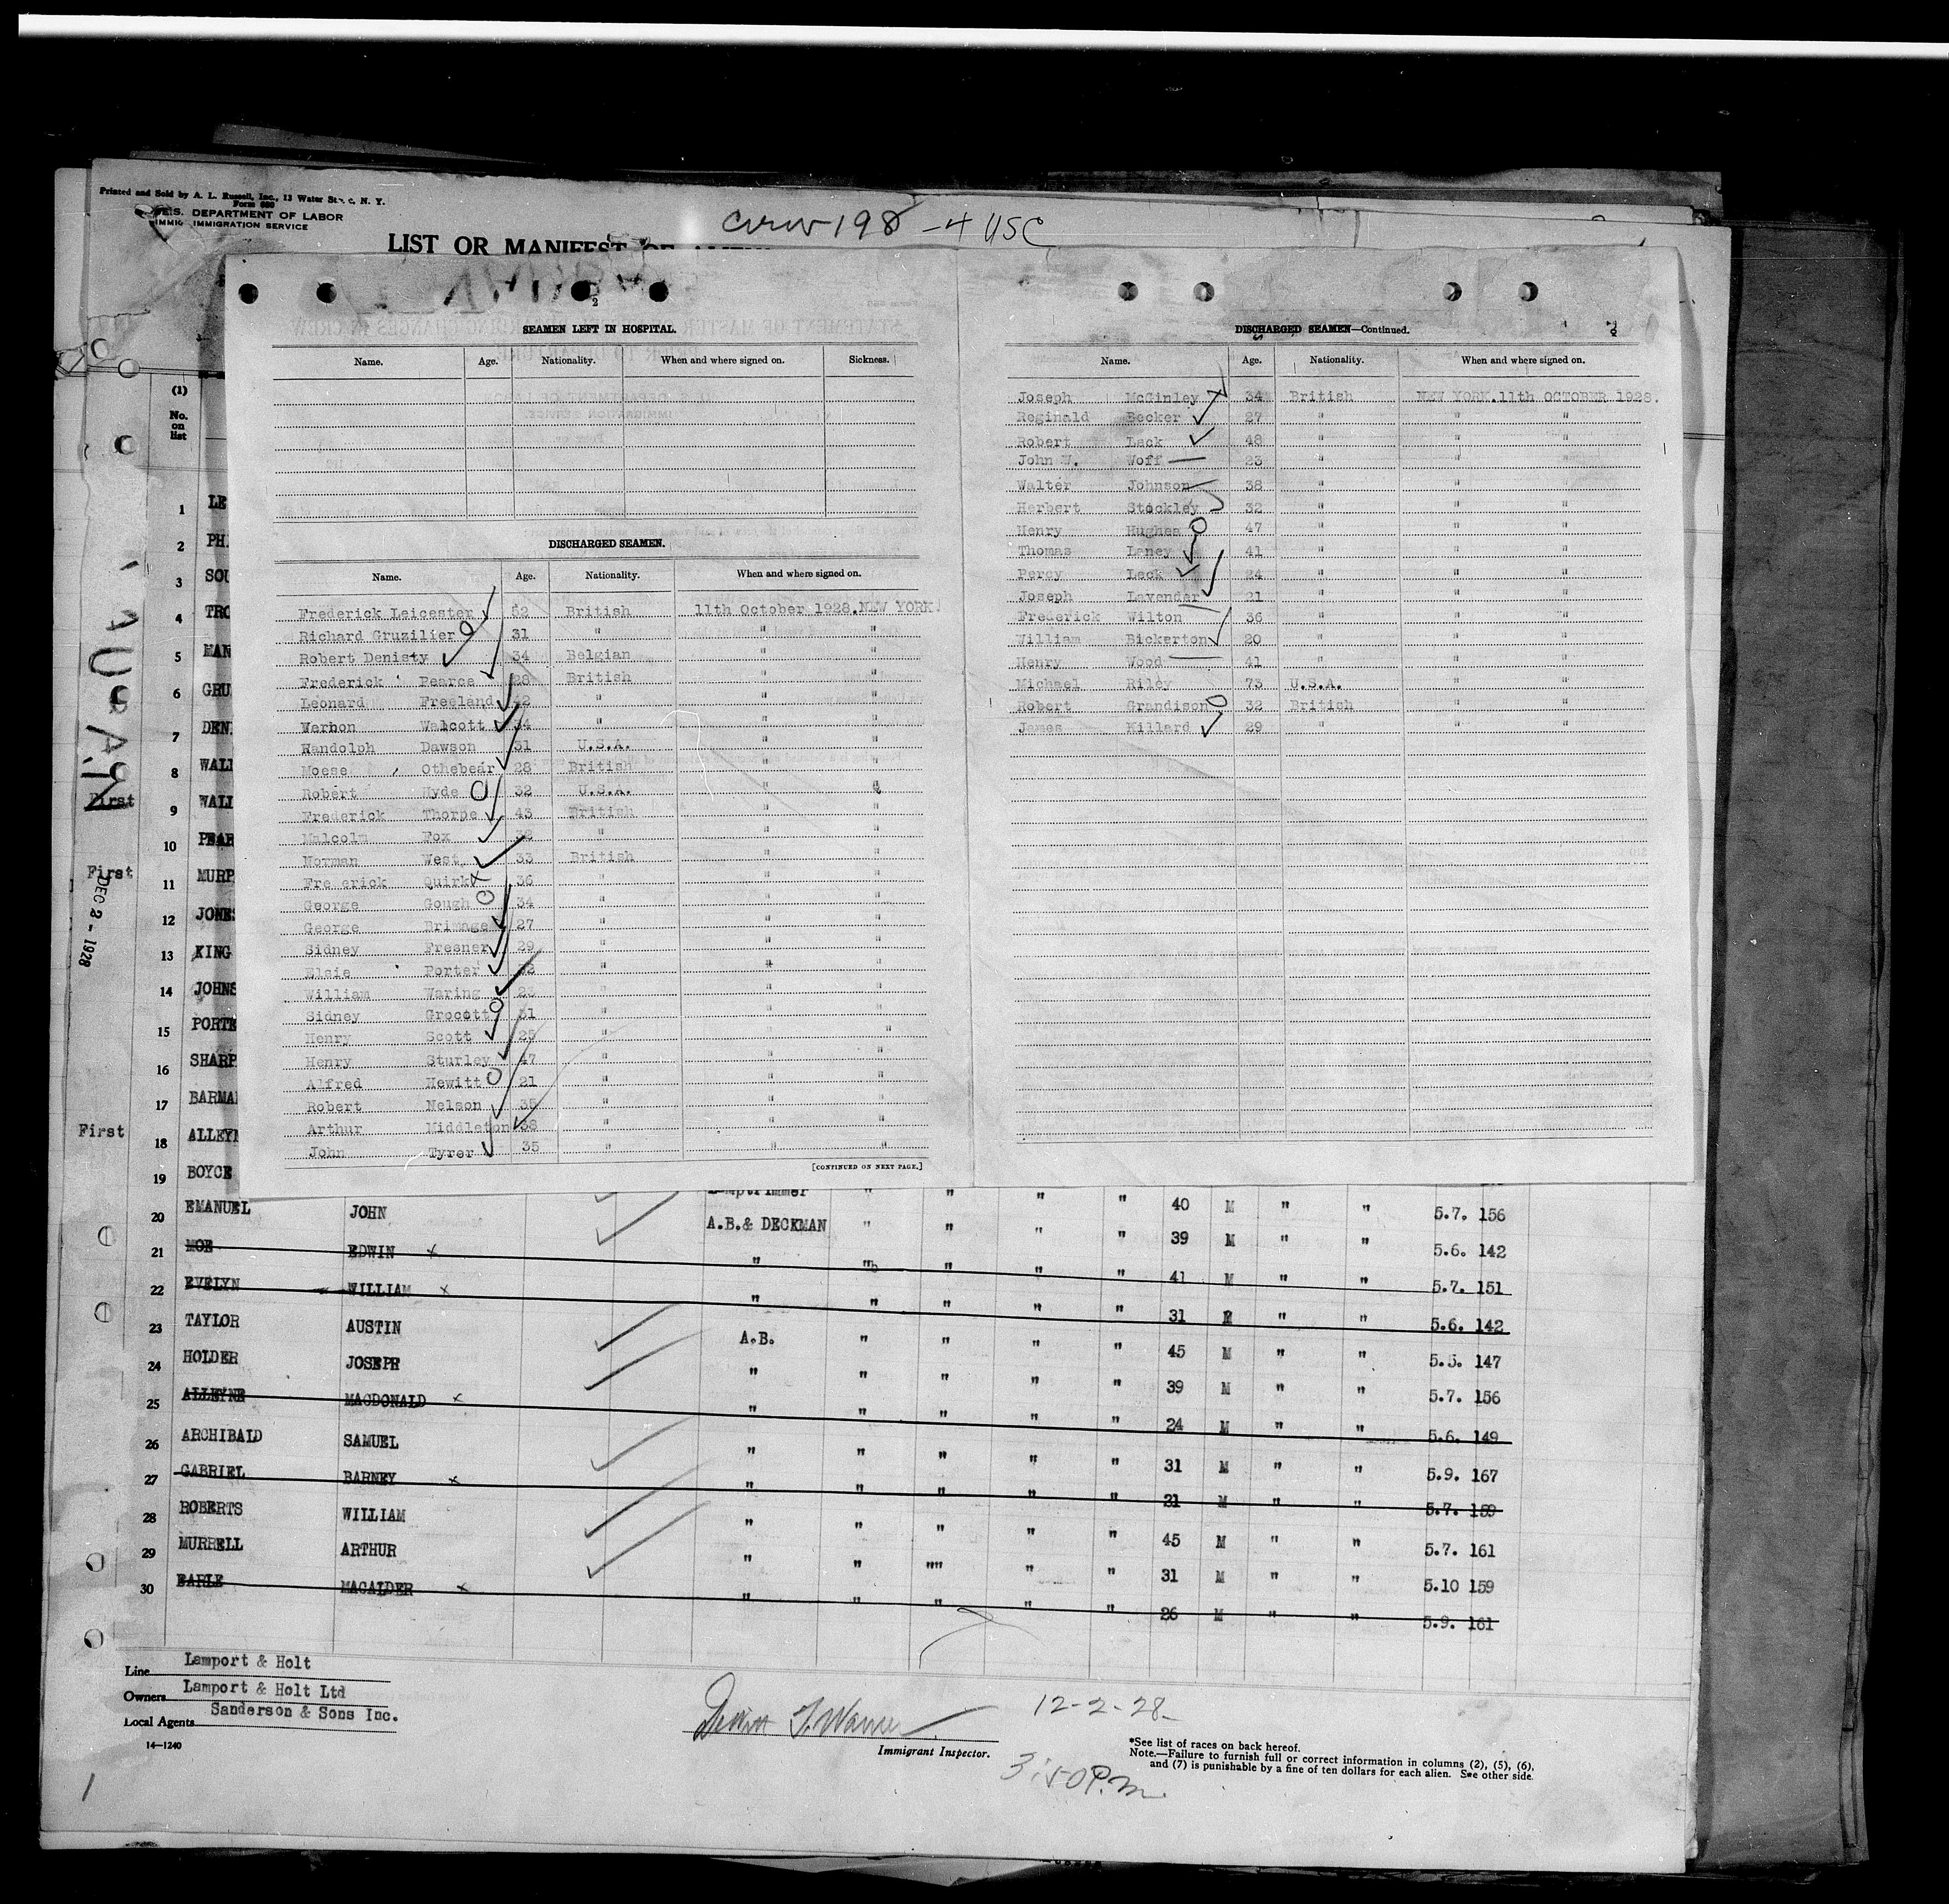 Printed and Sold by A. L. Russell, Inc., 13 Water St., N. Y.
Form 680
U.S. DEPARTMENT OF LABOR
IMMIGRATION SERVICE
LIST OR MANIFEST OF
crew 198 - 4 USC
2
SEAMEN LEFT IN HOSPITAL.
Name. Age. Nationality. When and where signed on. Sickness.
DISCHARGED SEAMEN.
Name. Age. Nationality. When and where signed on.
Frederick Leicester 52 British 11th October 1928. NEW YORK.
Richard Gruzilier 31 " " "
Robert Denisty 34 Belgian " "
Frederick Pearce 28 British " "
Leonard Freeland 42 " " "
Wernon Walcott 34 " " "
Randolph Dawson 31 U.S.A. " "
Moese Othebear 28 British " "
Robert Hyde 32 U.S.A. " "
Frederick Thorpe 43 British " "
Malcolm Fox 32 " " "
Norman West 33 British " "
Frederick Quirk 36 " " "
George Gough 34 " " "
George Brimage 27 " " "
Sidney Fresner 29 " " "
Elsie Porter 32 " " "
William Waring 23 " " "
Sidney Grocott 31 " " "
Henry Scott 25 " " "
Henry Sturley 47 " " "
Alfred Hewitt 21 " " "
Robert Nelson 35 " " "
Arthur Middleton 38 " " "
John Tyrer 35 " " "
[CONTINUED ON NEXT PAGE.]
DISCHARGED SEAMEN—Continued.
Name. Age. Nationality. When and where signed on.
Joseph McGinley 34 British NEW YORK.11th OCTOBER 1928.
Reginald Becker 27 " " "
Robert Lack 48 " " "
John W. Woff 23 " " "
Walter Johnson 38 " " "
Herbert Stockley 32 " " "
Henry Hughes 47 " " "
Thomas Laney 41 " " "
Percy Leck 24 " " "
Joseph Lavender 21 " " "
Frederick Wilton 36 " " "
William Bickerton 20 " " "
Henry Wood 41 " " "
Michael Riley 73 U.S.A. " "
Robert Grandison 32 British " "
James Killard 29 " " "
(1)
No. on list
1 LE
2 PH
3 SOU
4 TRO
5 MAN
6 GRU
7 DEN
8 WALL
First 9 WALL
10 PEAR
First 11 MURP
DEC 2 - 1928
12 JONES
13 KING
14 JOHNS
15 PORTE
16 SHARP
17 BARMA
First 18 ALLEY
19 BOYCE
20 EMANUEL JOHN " " " " 40 M " " 5.7. 156
A.B.& DECKMAN " " " " 39 M " " 5.6. 142
21 MOE EDWIN x " " " " " 41 M " " 5.7. 151
22 EVELYN WILLIAM x " " " " " 31 M " " 5.6. 142
23 TAYLOR AUSTIN A.B. " " " " 45 M " " 5.5. 147
24 HOLDER JOSEPH " " " " " 39 M " " 5.7. 156
25 ALLEYNE MACDONALD x " " " " " 24 M " " 5.6. 149
26 ARCHIBALD SAMUEL " " " " " 31 M " " 5.9. 167
27 GABRIEL BARNEY x " " " " " 21 M " " 5.7. 159
28 ROBERTS WILLIAM " " " " " 45 M " " 5.7. 161
29 MURRELL ARTHUR " " "" " " 31 M " " 5.10 159
30 EARLE MACALDER x " " " " " 26 M " " 5.9. 161
Line Lamport & Holt
Owners Lamport & Holt Ltd
Local Agents Sanderson & Sons Inc.
14—1240
Immigrant Inspector.
12-2-28
3:50 P.m.
*See list of races on back hereof.
Note.—Failure to furnish full or correct information in columns (2), (5), (6),
and (7) is punishable by a fine of ten dollars for each alien. See other side.
1